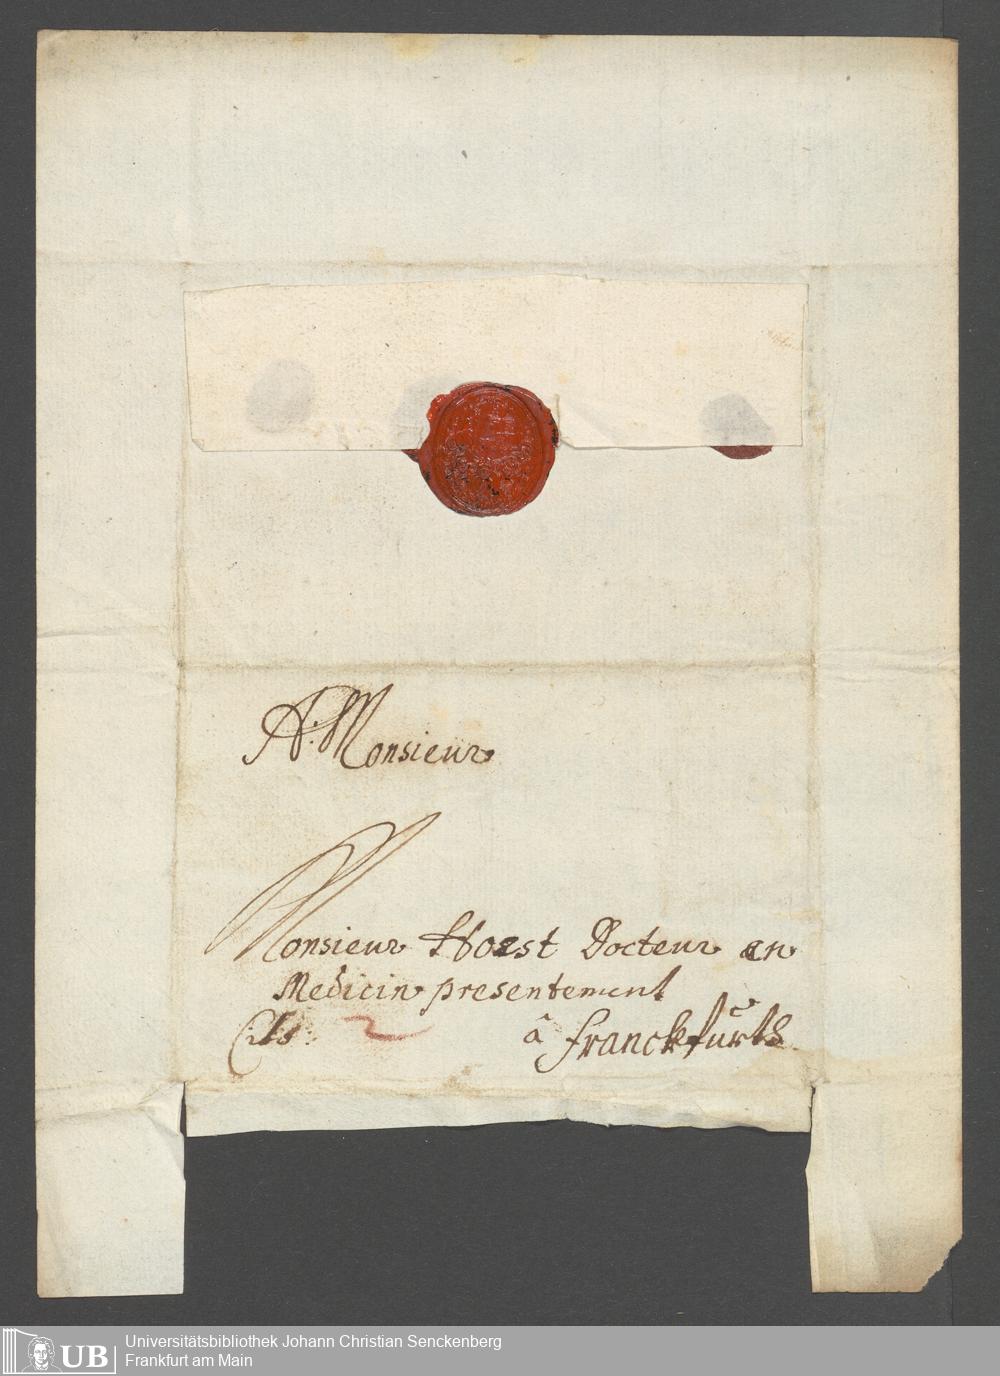 A: Monsieur
Monsieur Horst Docteur en
Medicin presentement
Cito 2 â Franckfurth
UB
Universitätsbibliothek Johann Christian Senckenberg
Frankfurt am Main